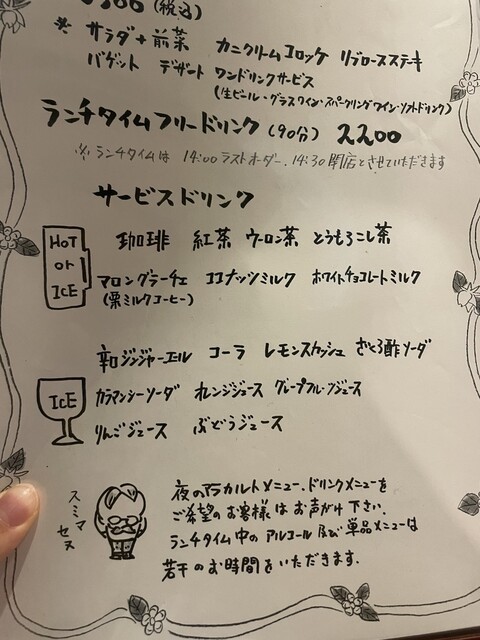 (税込)
※ サラダ+前菜 カニクリームコロッケ リブロースステーキ
バゲット デザート ワンドリンクサービス
(生ビール・グラスワイン・スパークリングワイン・ソフトドリンク)
ランチタイムフリードリンク(90分) 2200
※ ランチタイムは 14:00 ラストオーダー、14:30 閉店とさせていただきます
サービスドリンク
HOT or ICE
珈琲 紅茶 ウーロン茶 とうもろこし茶
マロングラーチェ ココナッツミルク ホワイトチョコレートミルク
(栗ミルクコーヒー)
ICE
辛口ジンジャーエール コーラ レモンスカッシュ ざくろ酢ソーダ
カラマンシーソーダ オレンジジュース グレープフルーツジュース
りんごジュース ぶどうジュース
スミマセヌ
夜のアラカルトメニュー、ドリンクメニューを
ご希望のお客様はお声がけ下さい。
ランチタイム中のアルコール及び単品メニューは
若干のお時間をいただきます。